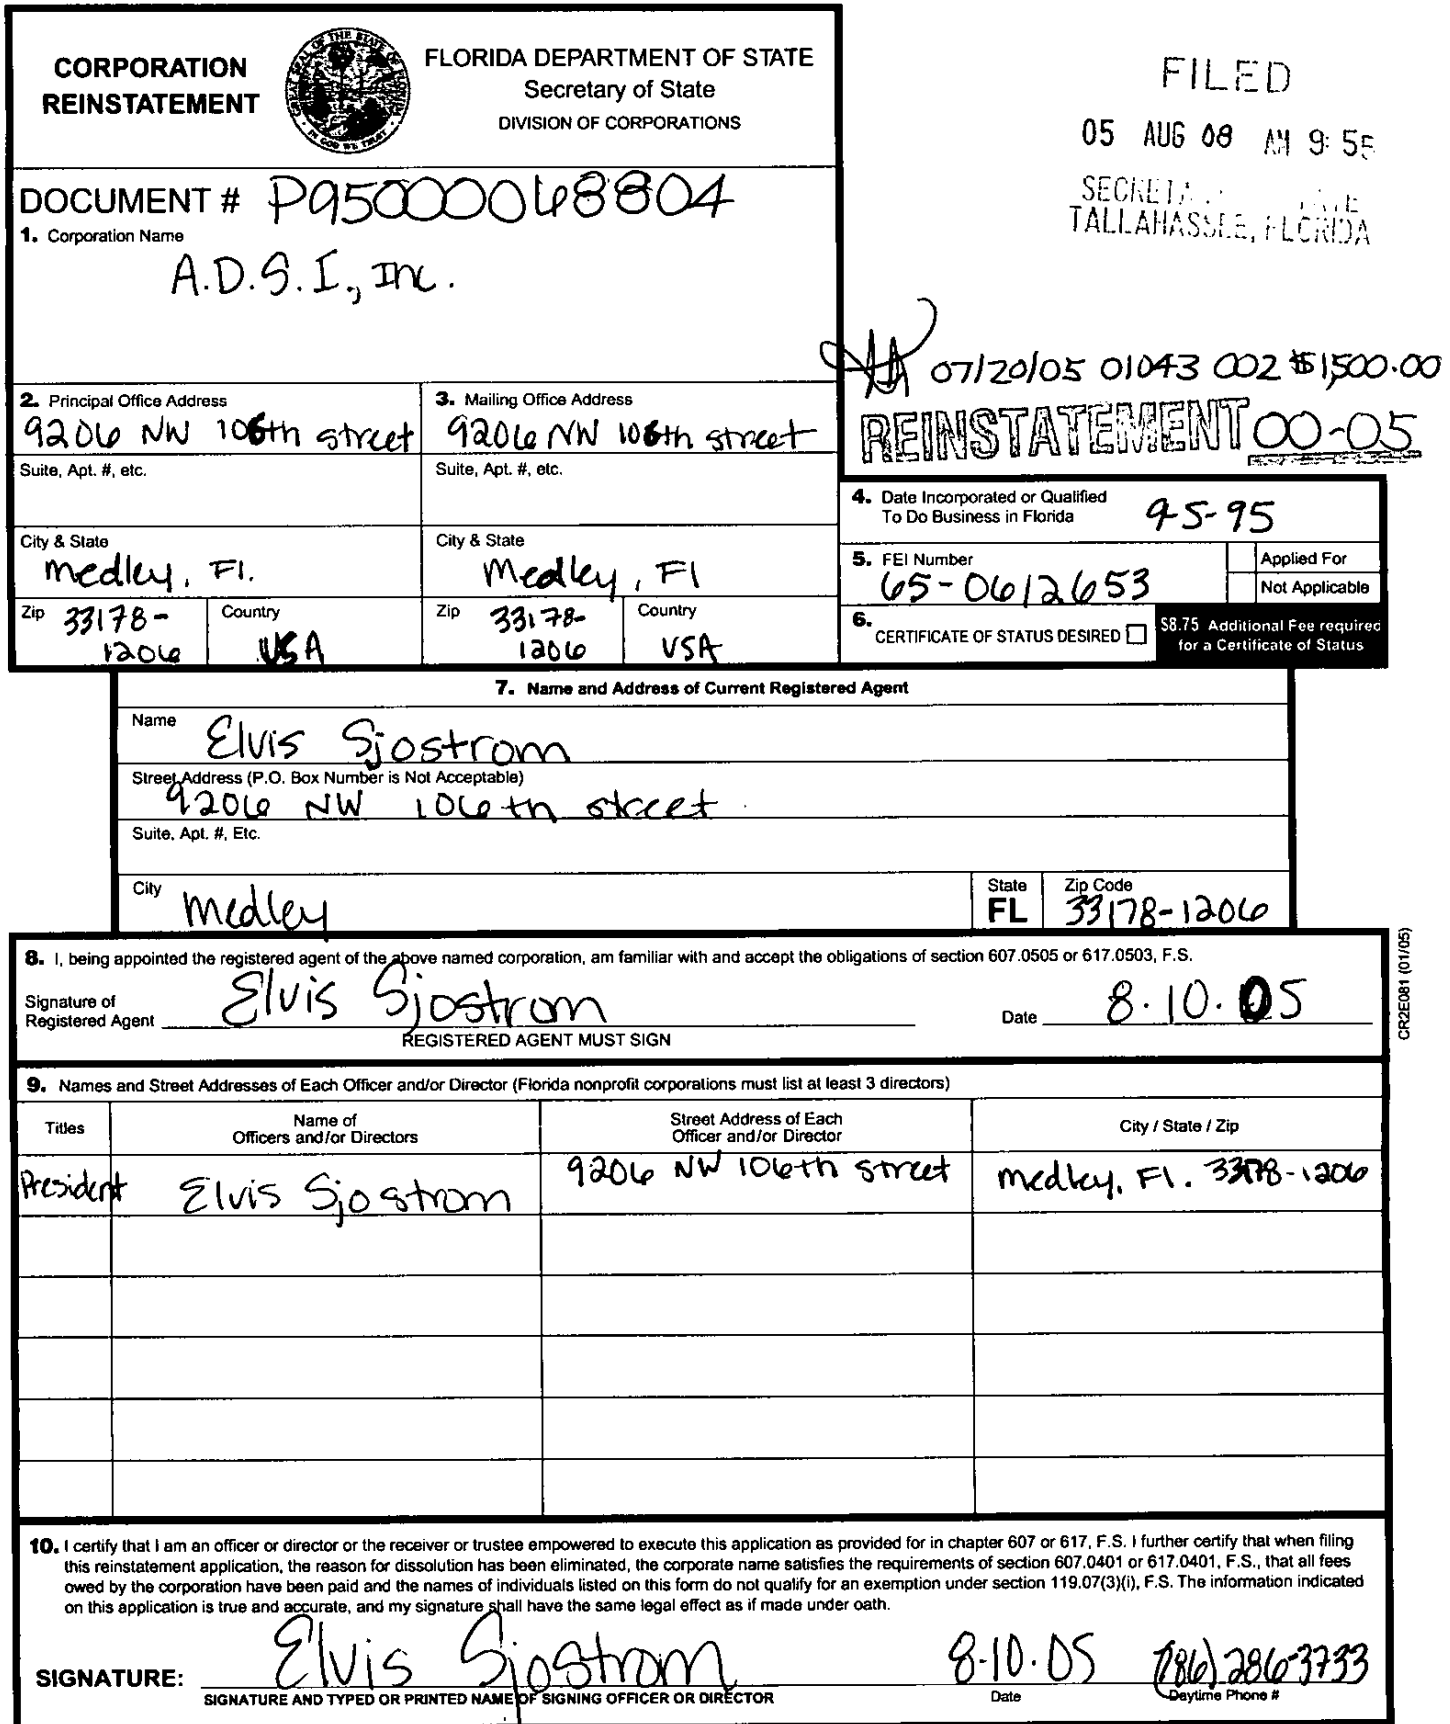 CORPORATION
REINSTATEMENT
GREAT SEAL OF THE STATE OF FLORIDA
IN GOD WE TRUST
FLORIDA DEPARTMENT OF STATE
Secretary of State
DIVISION OF CORPORATIONS
FILED
05 AUG 08 AM 9:55
TALLAHASSEE, FLORIDA
DOCUMENT # P95000068804
1. Corporation Name
A.D.S.I., Inc.
07/20/05 01043 002 $1,500.00
REINSTATEMENT 00-05
2. Principal Office Address
9206 NW 106th street
3. Mailing Office Address
9206 NW 106th street
Suite, Apt. #, etc.
Suite, Apt. #, etc.
City & State
Medley, Fl.
City & State
Medley, Fl
Zip 33178-
1206
Country
USA
Zip 33178-
1206
Country
USA
4. Date Incorporated or Qualified
To Do Business in Florida
9-5-95
5. FEI Number
65-0612653
Applied For
Not Applicable
6. CERTIFICATE OF STATUS DESIRED
$8.75 Additional Fee required
for a Certificate of Status
7. Name and Address of Current Registered Agent
Name Elvis Sjostrom
Street Address (P.O. Box Number is Not Acceptable)
9206 NW 106th street
Suite, Apt. #, Etc.
City Medley
State
FL
Zip Code
33178-1206
8. I, being appointed the registered agent of the above named corporation, am familiar with and accept the obligations of section 607.0505 or 617.0503, F.S.
Signature of
Registered Agent Elvis Sjostrom
REGISTERED AGENT MUST SIGN
Date 8.10.05
CR2E081 (01/05)
9. Names and Street Addresses of Each Officer and/or Director (Florida nonprofit corporations must list at least 3 directors)
Titles
Name of
Officers and/or Directors
Street Address of Each
Officer and/or Director
City / State / Zip
President
Elvis Sjostrom
9206 NW 106th street
Medley, Fl. 33178-1206
10. I certify that I am an officer or director or the receiver or trustee empowered to execute this application as provided for in chapter 607 or 617, F.S. I further certify that when filing
this reinstatement application, the reason for dissolution has been eliminated, the corporate name satisfies the requirements of section 607.0401 or 617.0401, F.S., that all fees
owed by the corporation have been paid and the names of individuals listed on this form do not qualify for an exemption under section 119.07(3)(i), F.S. The information indicated
on this application is true and accurate, and my signature shall have the same legal effect as if made under oath.
SIGNATURE: Elvis Sjostrom
SIGNATURE AND TYPED OR PRINTED NAME OF SIGNING OFFICER OR DIRECTOR
8-10.05
Date
(786) 286-3733
Daytime Phone #